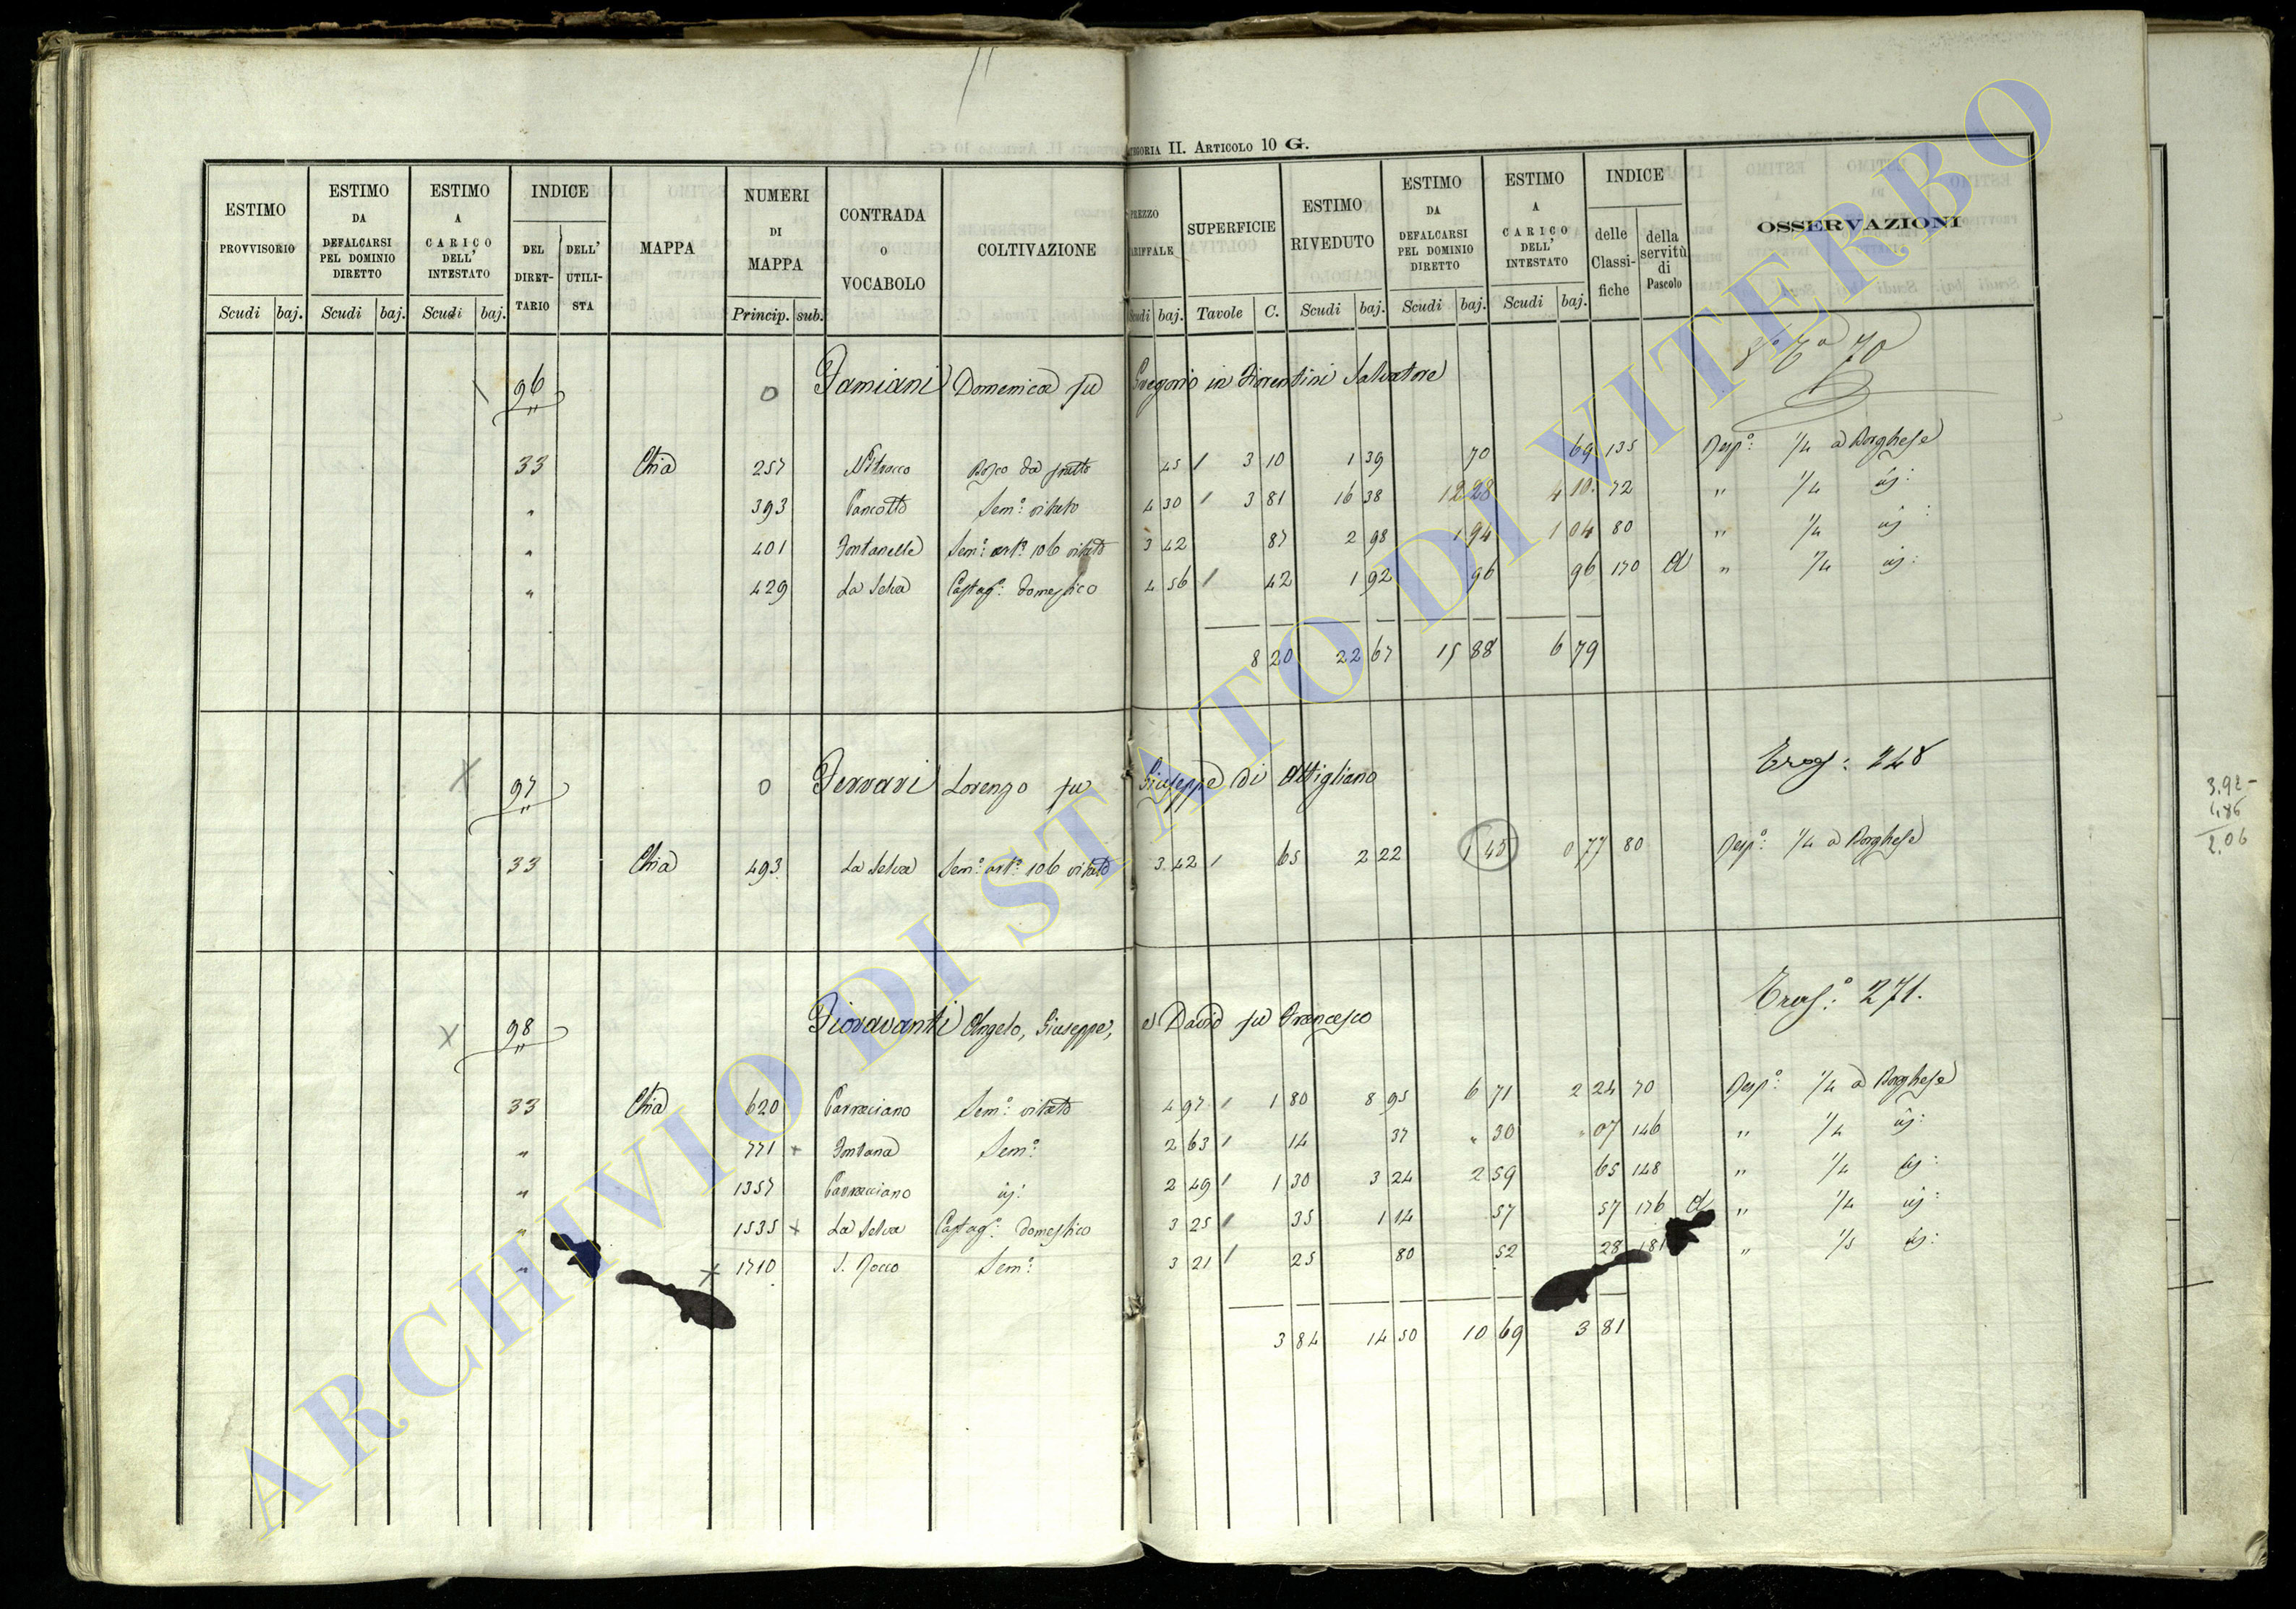 CATEGORIA II. ARTICOLO 10 G.
ESTIMO PROVVISORIO | ESTIMO DA DEFALCARSI PEL DOMINIO DIRETTO | ESTIMO A CARICO DELL' INTESTATO | INDICE | MAPPA | NUMERI DI MAPPA | CONTRADA O VOCABOLO | COLTIVAZIONE | PREZZO TARIFFALE | SUPERFICIE | ESTIMO RIVEDUTO | ESTIMO DA DEFALCARSI PEL DOMINIO DIRETTO | ESTIMO A CARICO DELL' INTESTATO | INDICE | OSSERVAZIONI
DEL DIRETTARIO | DELL' UTILISTA | delle Classifiche | della servitù di Pascolo
Scudi baj. | Scudi baj. | Scudi baj. | Princip. sub. | Scudi baj. | Tavole C. | Scudi baj. | Scudi baj. | Scudi baj.
96 Damiani Domenica fu Gregorio in Fiorentini Salvatore 70
33 Chia 257 Bosco da frutto 45 3 10 1 39 70 69 135 Risp: 1/4 a Borghese
" 393 Pancotto Sem: vitato 4 30 3 81 16 38 12 28 4 10 72 " 1/4 ij:
" 401 Fontanelle Sem: art: 106 vitato 3 42 87 2 98 1 94 1 04 80 " 1/4 ij:
" 429 La Selva Castag: domestico 4 56 42 1 92 96 96 170 a " 1/4 ij:
8 20 22 67 15 88 6 79
97 Ferrari Lorenzo fu Giuseppe di Attigliano 248
33 Chia 493 La Selva Sem: art: 106 vitato 3 42 65 2 22 1 45 0 77 80 Risp: 1/4 a Borghese
3.92
1.86
2.06
98 Fioravanti Angelo, Giuseppe, e David fu Francesco 271.
33 Chia 620 Parracciano Sem: vitato 4 97 1 80 8 95 6 71 2 24 70 Risp: 1/4 a Borghese
" 771 Fontana Sem: 2 63 14 37 " 30 " 07 146 " 1/4 ij:
" 1357 Parracciano ij: 2 49 1 30 3 24 2 59 65 148 " 1/4 ij:
" 1535 La Selva Castag: domestico 3 25 35 1 14 57 57 176 a " 1/4 ij:
" 1710 S. Rocco Sem: 3 21 25 80 52 28 181 " 1/5 ij:
3 84 14 50 10 69 3 81
ARCHIVIO DI STATO DI VITERBO